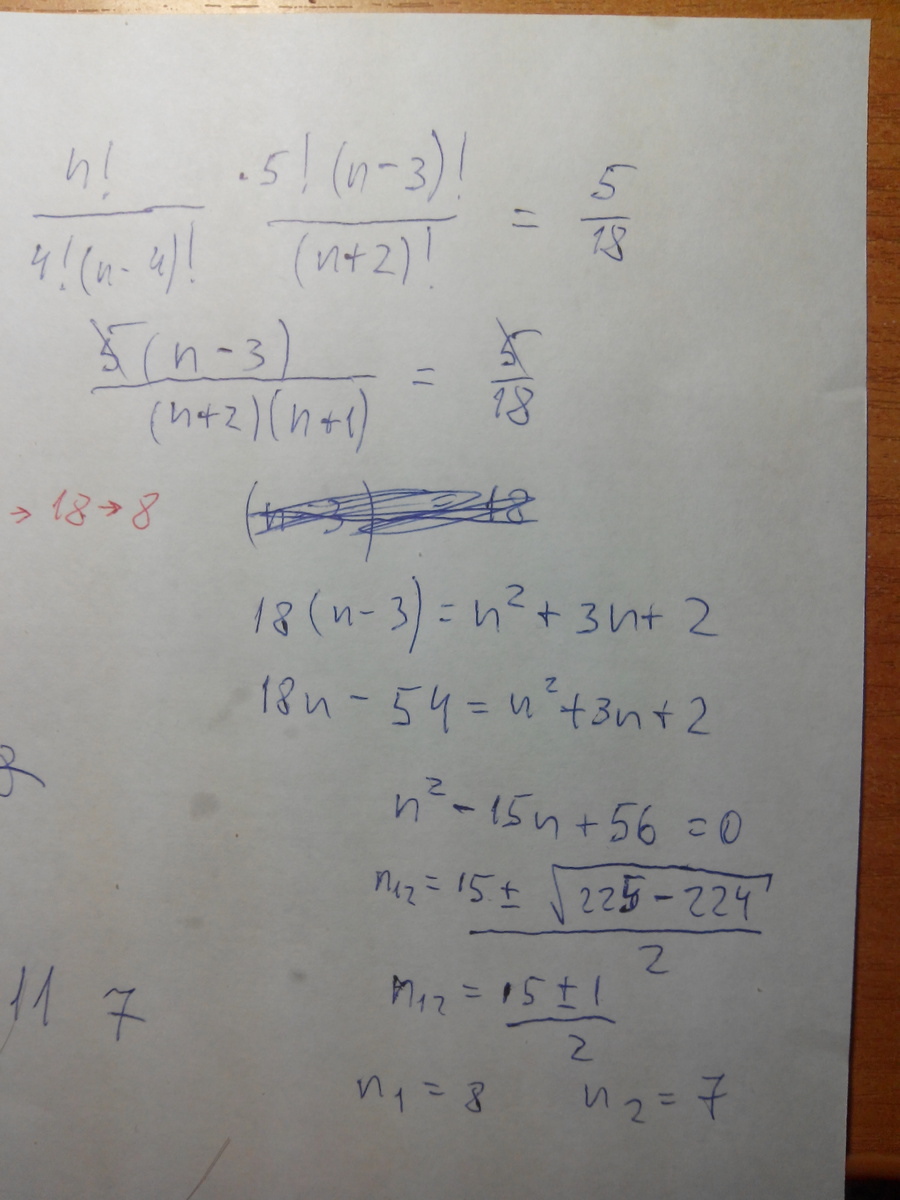 n! / 4!(n-4)! · 5!(n-3)! / (n+2)! = 5/18
5(n-3) / (n+2)(n+1) = 5/18
→ 18 → 8
18(n-3) = n² + 3n + 2
18n - 54 = n² + 3n + 2
n² - 15n + 56 = 0
n₁₂ = 15 ± √(225 - 224) / 2
n₁₂ = 15 ± 1 / 2
11 7
n₁ = 8 n₂ = 7